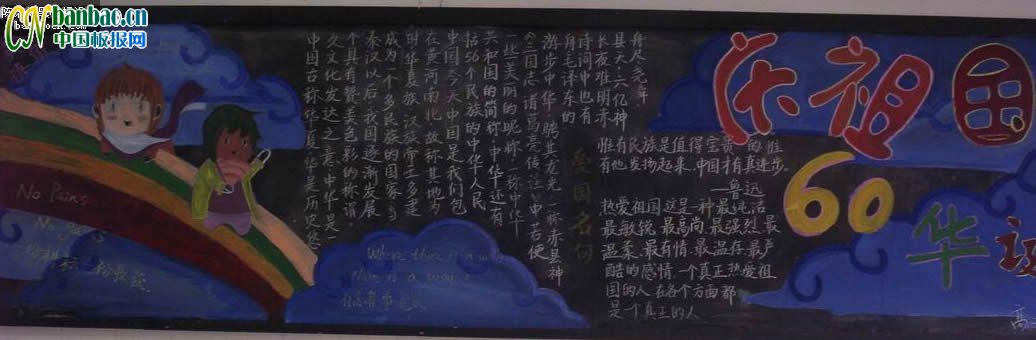 CNbanbao.cn
中国板报网
No Pains
No
一份耕耘,一份收获
中国古称华夏,华夏是历史悠
久文化发达之意,中华是一
个具有赞美色彩的称谓,
秦汉以后,我国逐渐发展
成为一个多民族的国家,当
时华夏族、汉族帝王多建
在黄河南北,故称其地为
中国,今天中国是我们包
括56个民族的中华人民
共和国的简称,中华还有
一些美丽的昵称,一称中华,
《三国志·诸葛亮传》注中“若使
游步中华,骋其龙光”,一称赤县神
舟,毛泽东的
诗词中也有
长夜难明赤
县天,六亿神
舟尽尧舜
Where there is a way
有志者事竟成
爱国名句
庆祖国
60
华
惟有民族是值得宝贵的,惟
有他发扬起来,中国才有真进步。
——鲁迅
热爱祖国,这是一种最纯洁
最敏锐、最高尚、最强烈、最
温柔、最有情、最温存、最严
酷的感情,一个真正热爱祖
国的人,在各个方面都
是一个真正的人
高